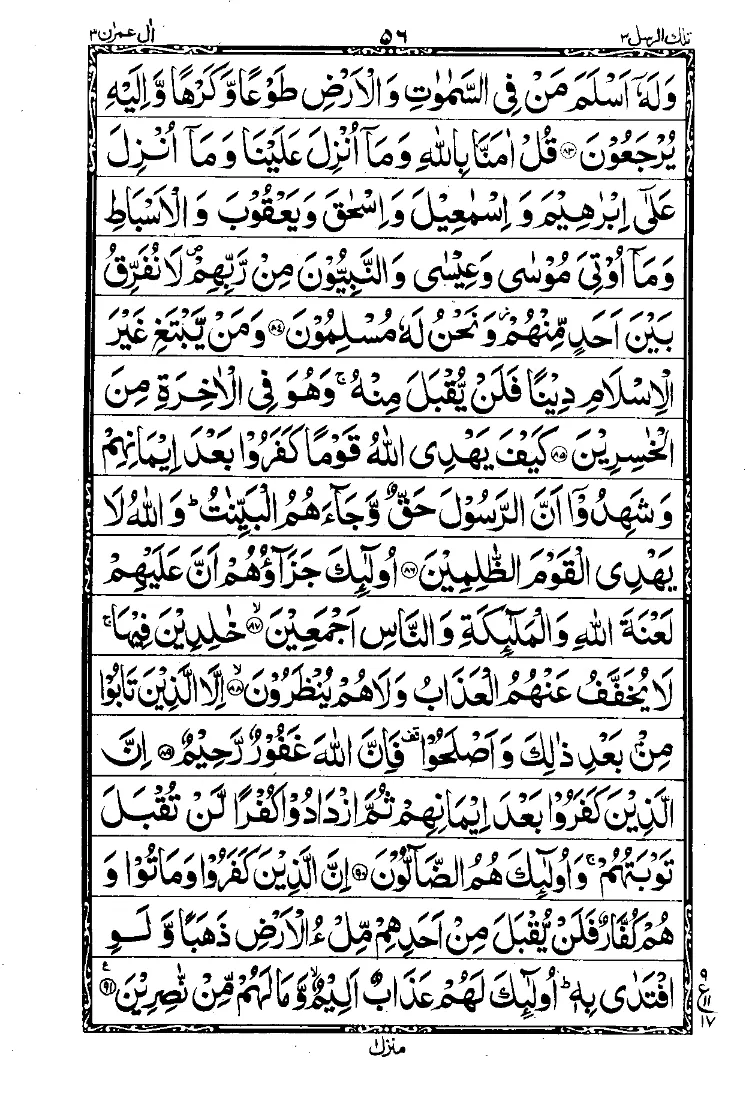 تلك الرسل ٣
٥٦
اٰل عمرٰن ٣
وَلَهٗٓ اَسْلَمَ مَنْ فِى السَّمٰوٰتِ وَالْاَرْضِ طَوْعًا وَّكَرْهًا وَّاِلَيْهِ
يُرْجَعُوْنَ ﴿٨٣﴾ قُلْ اٰمَنَّا بِاللّٰهِ وَمَآ اُنْزِلَ عَلَيْنَا وَمَآ اُنْزِلَ
عَلٰٓى اِبْرٰهِيْمَ وَ اِسْمٰعِيْلَ وَاِسْحٰقَ وَيَعْقُوْبَ وَالْاَسْبَاطِ
وَمَآ اُوْتِىَ مُوْسٰى وَعِيْسٰى وَالنَّبِيُّوْنَ مِنْ رَّبِّهِمْ ۪ لَا نُفَرِّقُ
بَيْنَ اَحَدٍ مِّنْهُمْ ۡ وَنَحْنُ لَهٗ مُسْلِمُوْنَ ﴿٨٤﴾ وَمَنْ يَّبْتَغِ غَيْرَ
الْاِسْلَامِ دِيْنًا فَلَنْ يُّقْبَلَ مِنْهُ ۚ وَهُوَ فِى الْاٰخِرَةِ مِنَ
الْخٰسِرِيْنَ ﴿٨٥﴾ كَيْفَ يَهْدِى اللّٰهُ قَوْمًا كَفَرُوْا بَعْدَ اِيْمَانِهِمْ
وَشَهِدُوْٓا اَنَّ الرَّسُوْلَ حَقٌّ وَّجَآءَهُمُ الْبَيِّنٰتُ ؕ وَاللّٰهُ لَا
يَهْدِى الْقَوْمَ الظّٰلِمِيْنَ ﴿٨٦﴾ اُولٰٓئِكَ جَزَآؤُهُمْ اَنَّ عَلَيْهِمْ
لَعْنَةَ اللّٰهِ وَالْمَلٰٓئِكَةِ وَالنَّاسِ اَجْمَعِيْنَ ۙ﴿٨٧﴾ خٰلِدِيْنَ فِيْهَا ۚ
لَا يُخَفَّفُ عَنْهُمُ الْعَذَابُ وَلَا هُمْ يُنْظَرُوْنَ ۙ﴿٨٨﴾ اِلَّا الَّذِيْنَ تَابُوْا
مِنْۢ بَعْدِ ذٰلِكَ وَاَصْلَحُوْا قف فَاِنَّ اللّٰهَ غَفُوْرٌ رَّحِيْمٌ ﴿٨٩﴾ اِنَّ
الَّذِيْنَ كَفَرُوْا بَعْدَ اِيْمَانِهِمْ ثُمَّ ازْدَادُوْا كُفْرًا لَّنْ تُقْبَلَ
تَوْبَتُهُمْ ۚ وَاُولٰٓئِكَ هُمُ الضَّآلُّوْنَ ﴿٩٠﴾ اِنَّ الَّذِيْنَ كَفَرُوْا وَمَاتُوْا وَ
هُمْ كُفَّارٌ فَلَنْ يُّقْبَلَ مِنْ اَحَدِهِمْ مِّلْءُ الْاَرْضِ ذَهَبًا وَّ لَوِ
افْتَدٰى بِهٖ ؕ اُولٰٓئِكَ لَهُمْ عَذَابٌ اَلِيْمٌ ۙ وَّمَا لَهُمْ مِّنْ نّٰصِرِيْنَ ﴿٩١﴾ ع
٩
ع ١١
١٧
منزل ١